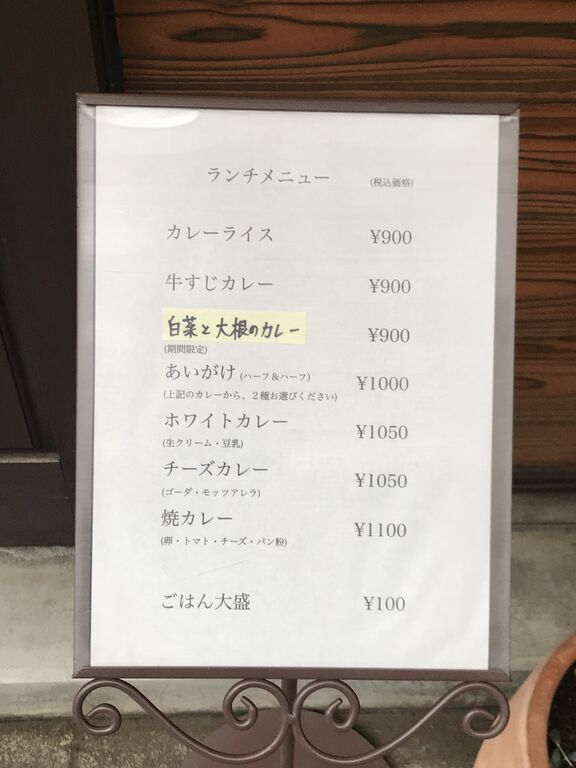 ランチメニュー (税込価格)
カレーライス ¥900
牛すじカレー ¥900
白菜と大根のカレー ¥900
(期間限定)
あいがけ (ハーフ＆ハーフ) ¥1000
(上記のカレーから、２種お選びください)
ホワイトカレー ¥1050
(生クリーム・豆乳)
チーズカレー ¥1050
(ゴーダ・モッツアレラ)
焼カレー ¥1100
(卵・トマト・チーズ・パン粉)
ごはん大盛 ¥100